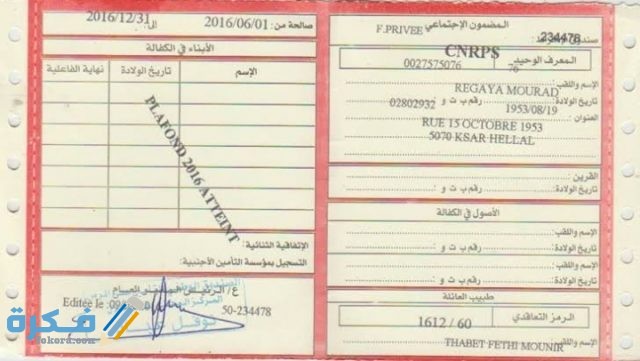 المضمون الإجتماعي
F.PRIVEE
234478
CNRPS
المعرف الوحيد
0027575076 76
الإسم واللقب:
REGAYA MOURAD
تاريخ الولادة: 1953/08/19 رقم ب ت و: 02802932
العنوان:
RUE 15 OCTOBRE 1953
5070 KSAR HELLAL
القرين:
تاريخ الولادة: رقم ب ت و:
الأصول في الكفالة
الإسم واللقب:
تاريخ الولادة: رقم ب ت و:
الإسم واللقب:
تاريخ الولادة: رقم ب ت و:
طبيب العائلة
الرمز التعاقدي
1612 / 60
الإسم واللقب:
THABET FETHI MOUNIR
صالحة من: 2016/06/01 إلى 2016/12/31
الأبناء في الكفالة
الإسم تاريخ الولادة نهاية الفاعلية
PLAFOND 2016 ATTEINT
الإتفاقية الثنائية:
التسجيل بمؤسسة التأمين الأجنبية:
ع/ الرئيس المدير العام
Editée le :
50-234478
فكرة